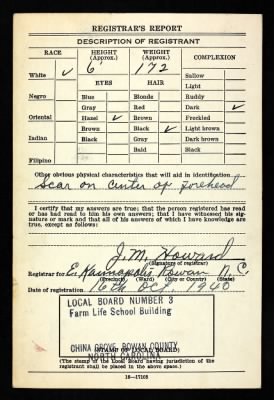 REGISTRAR'S REPORT
DESCRIPTION OF REGISTRANT
RACE HEIGHT (Approx.) WEIGHT (Approx.) COMPLEXION
6' 172
White ✓ Sallow
EYES HAIR Light
Negro Blue Blonde Ruddy
Gray Red Dark ✓
Oriental Hazel ✓ Brown Freckled
Brown Black ✓ Light brown
Indian Black Gray Dark brown
Bald Black
Filipino
Other obvious physical characteristics that will aid in identification
Scar on center of forehead
I certify that my answers are true; that the person registered has read
or has had read to him his own answers; that I have witnessed his
signature or mark and that all of his answers of which I have knowledge are
true, except as follows:
J. M. Howard
(Signature of registrar)
Registrar for E. Kannapolis Rowan N. C.
(Precinct) (Ward) (City or County) (State)
Date of registration 16th Oct. 1940
LOCAL BOARD NUMBER 3
Farm Life School Building
CHINA GROVE, ROWAN COUNTY
NORTH CAROLINA
(STAMP OF LOCAL BOARD)
(The stamp of the Local Board having jurisdiction of the
registrant shall be placed in the above space.)
16-17105